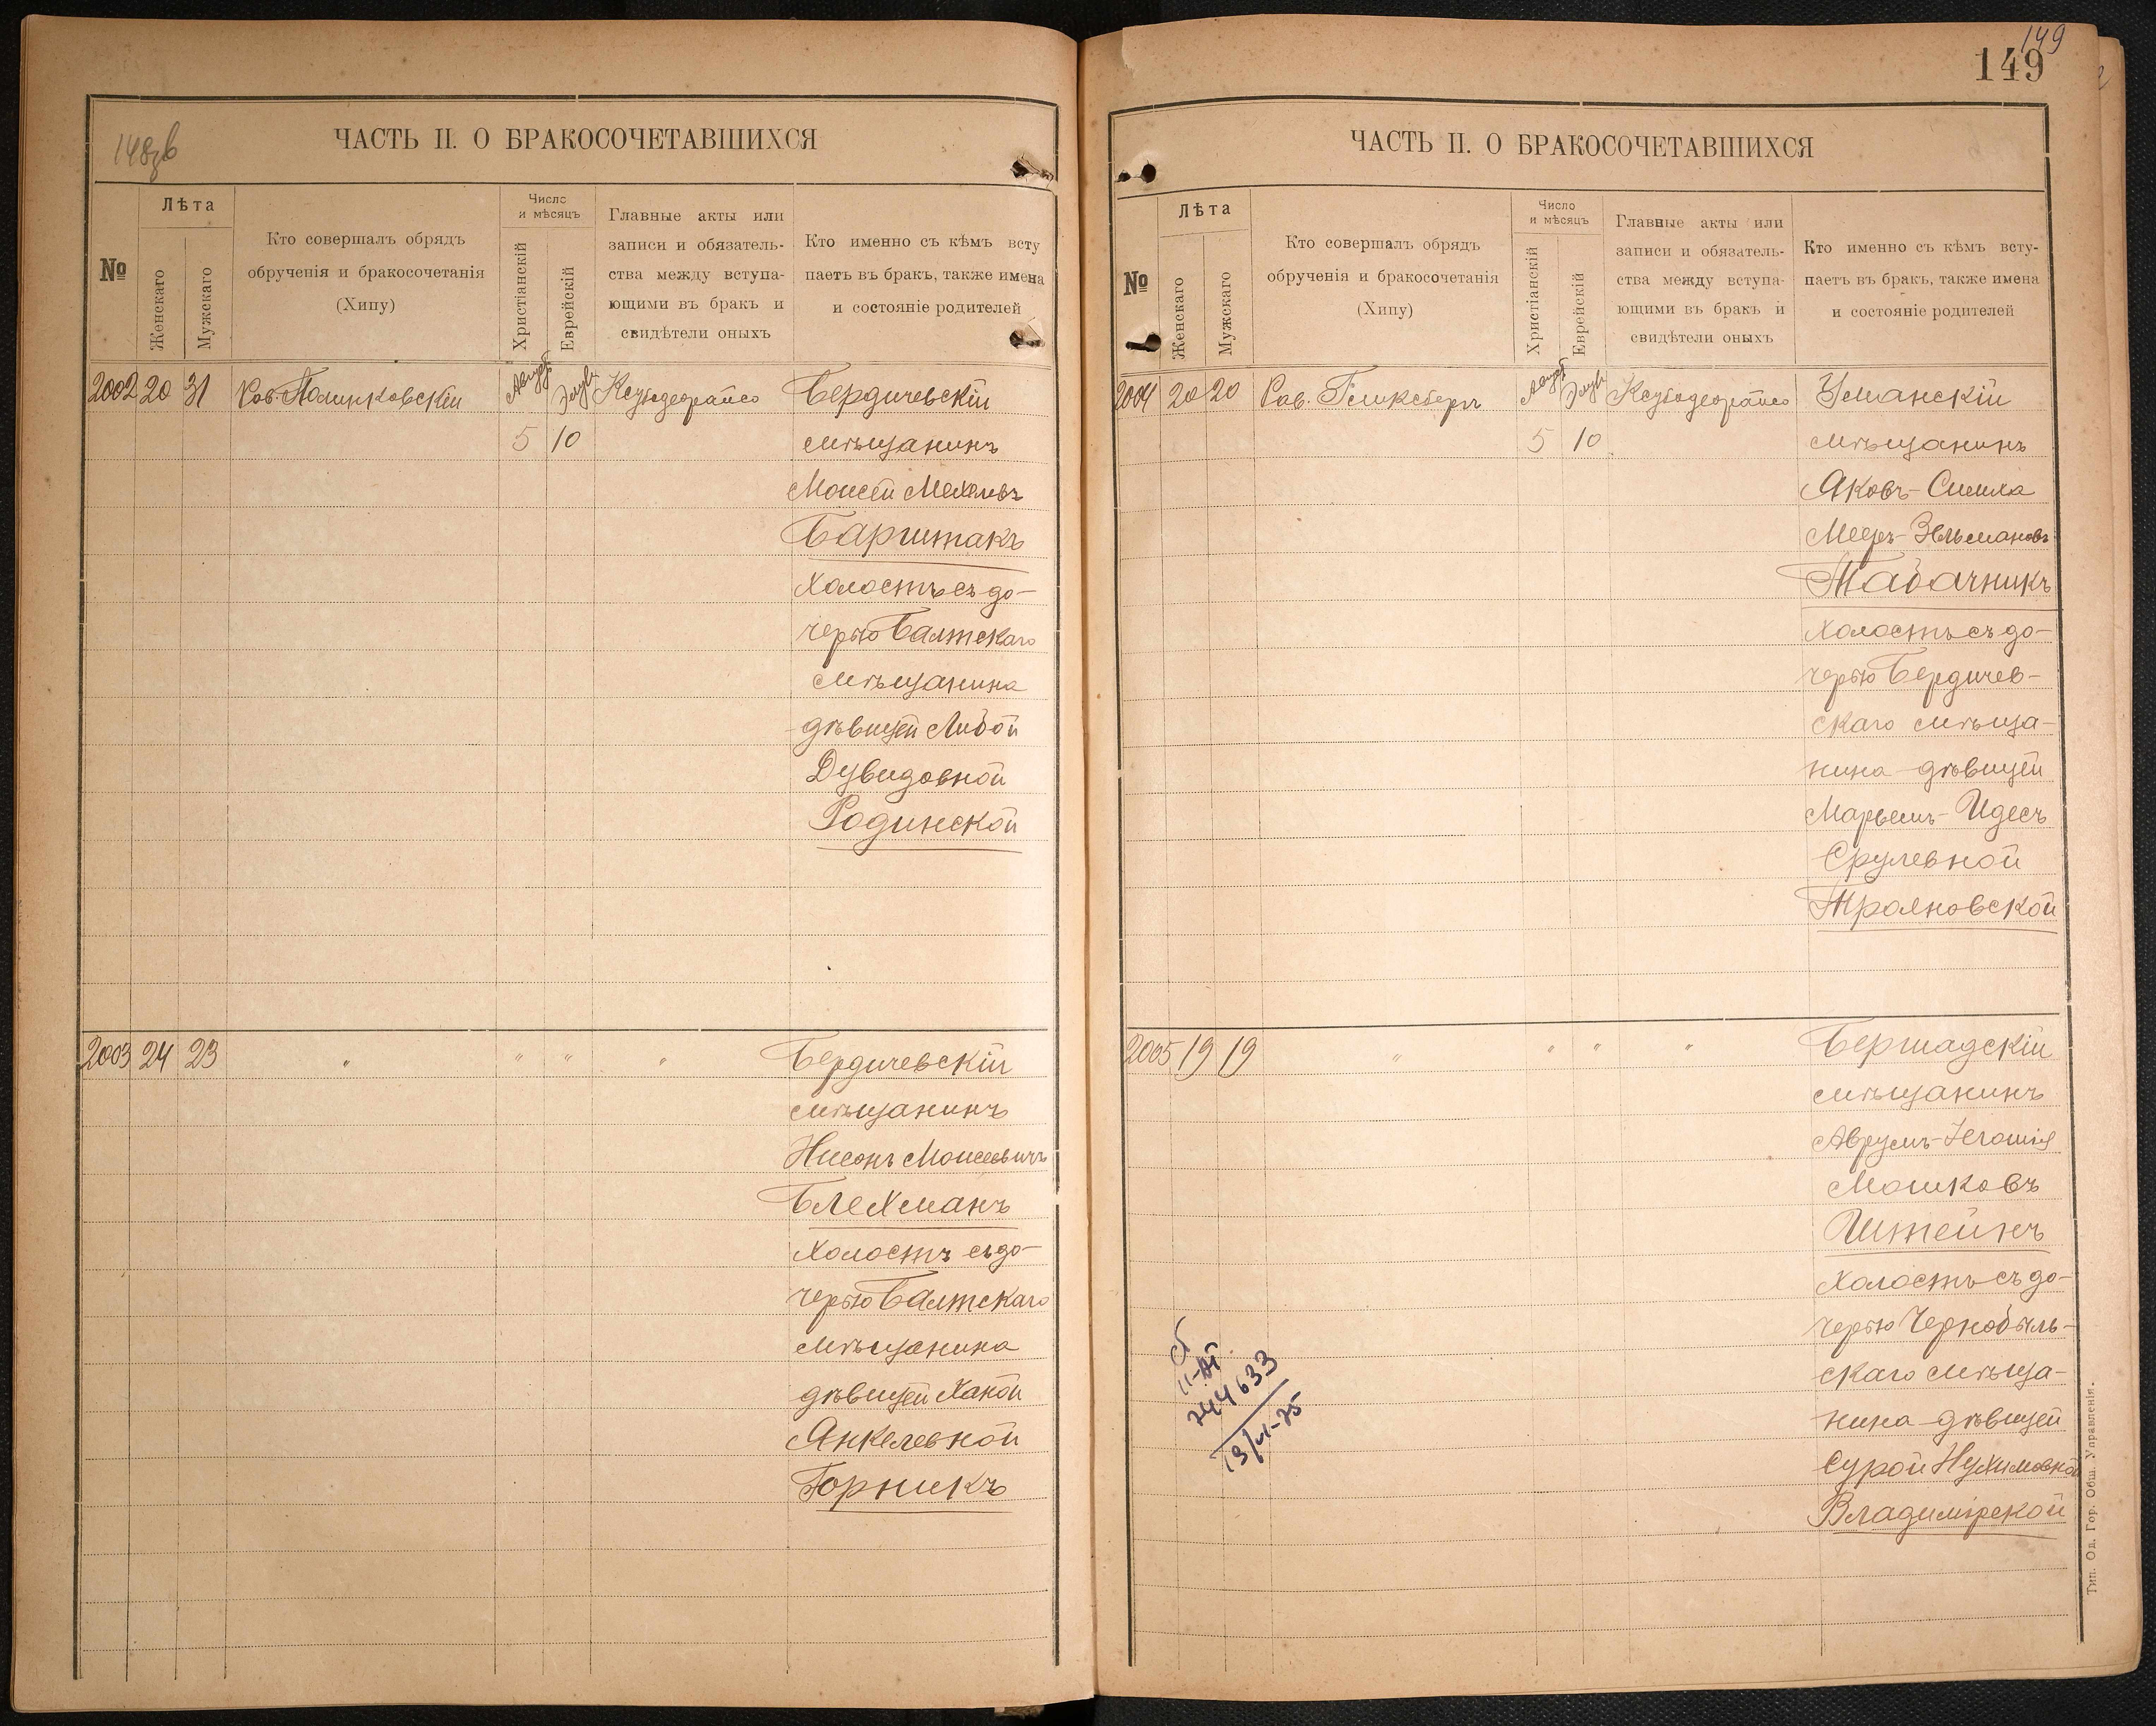 148зв
ЧАСТЬ II. О БРАКОСОЧЕТАВШИХСЯ
№
Лѣта
Женскаго
Мужскаго
Кто совершалъ обрядъ
обрученія и бракосочетанія
(Хипу)
Число
и мѣсяцъ
Христіанскій
Еврейскій
Главные акты или
записи и обязатель-
ства между вступа-
ющими въ бракъ и
свидѣтели оныхъ
Кто именно съ кѣмъ всту
паетъ въ бракъ, также имена
и состояніе родителей
2002 20 31 Рав. Полинковскій Август Элувъ Ксубодеорайсо Бердичевскій
5 10 мѣщанинъ
Моисей Мехелевъ
Барштакъ
холостъ съ до-
черью Балтскаго
мѣщанина
дѣвицей Либой
Дувидовной
Родинской
2003 24 23 " " " " Бердичевскій
мѣщанинъ
Нисонъ Моисеевичъ
Блехманъ
холостъ съ до-
черью Балтскаго
мѣщанина
дѣвицей Ханой
Янкелевной
Горникъ
149
149
ЧАСТЬ II. О БРАКОСОЧЕТАВШИХСЯ
№
Лѣта
Женскаго
Мужскаго
Кто совершалъ обрядъ
обрученія и бракосочетанія
(Хипу)
Число
и мѣсяцъ
Христіанскій
Еврейскій
Главные акты или
записи и обязатель-
ства между вступа-
ющими въ бракъ и
свидѣтели оныхъ
Кто именно съ кѣмъ всту-
паетъ въ бракъ, также имена
и состояніе родителей
2004 20 20 Рав. Гликсбергъ Август Элувъ Ксубодеорайсо Уманскій
5 10 мѣщанинъ
Яковъ-Симха
Мееръ-Зельмановъ
Табачникъ
холостъ съ до-
черью Бердичев-
скаго мѣща-
нина дѣвицей
Марьемъ-Идесъ
Срулевной
Трояновской
2005 19 19 " " " " Бершадскій
мѣщанинъ
Аврумъ-Іегошія
Мошковъ
Штейнъ
холостъ съ до-
черью Чернобыль-
скаго мѣща-
нина дѣвицей
Сурой Нухимовной
Владимірской
II-АГ
744633
13/VI-75
Тип. Од. Гор. Общ. Управленія.